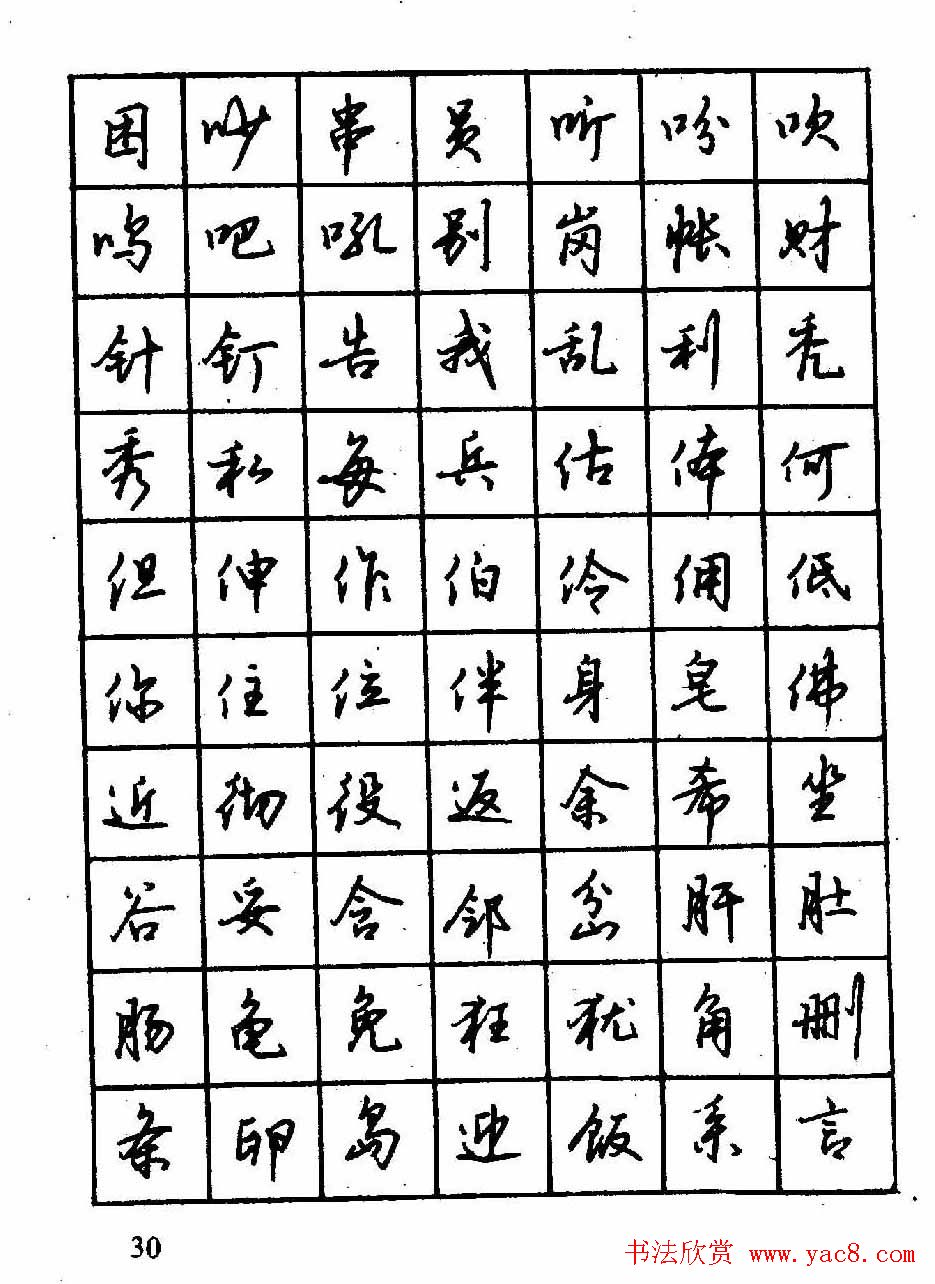 困吵串员听吩吹
呜吧吼别岗帐财
针钉告我乱利秃
秀私每兵估体何
但伸作伯伶佣低
你住位伴身皂佛
近彻役返余希坐
谷妥含邻岔肝肚
肠龟免狂犹角删
条卵岛迎饭系言
30
书法欣赏 www.yac8.com